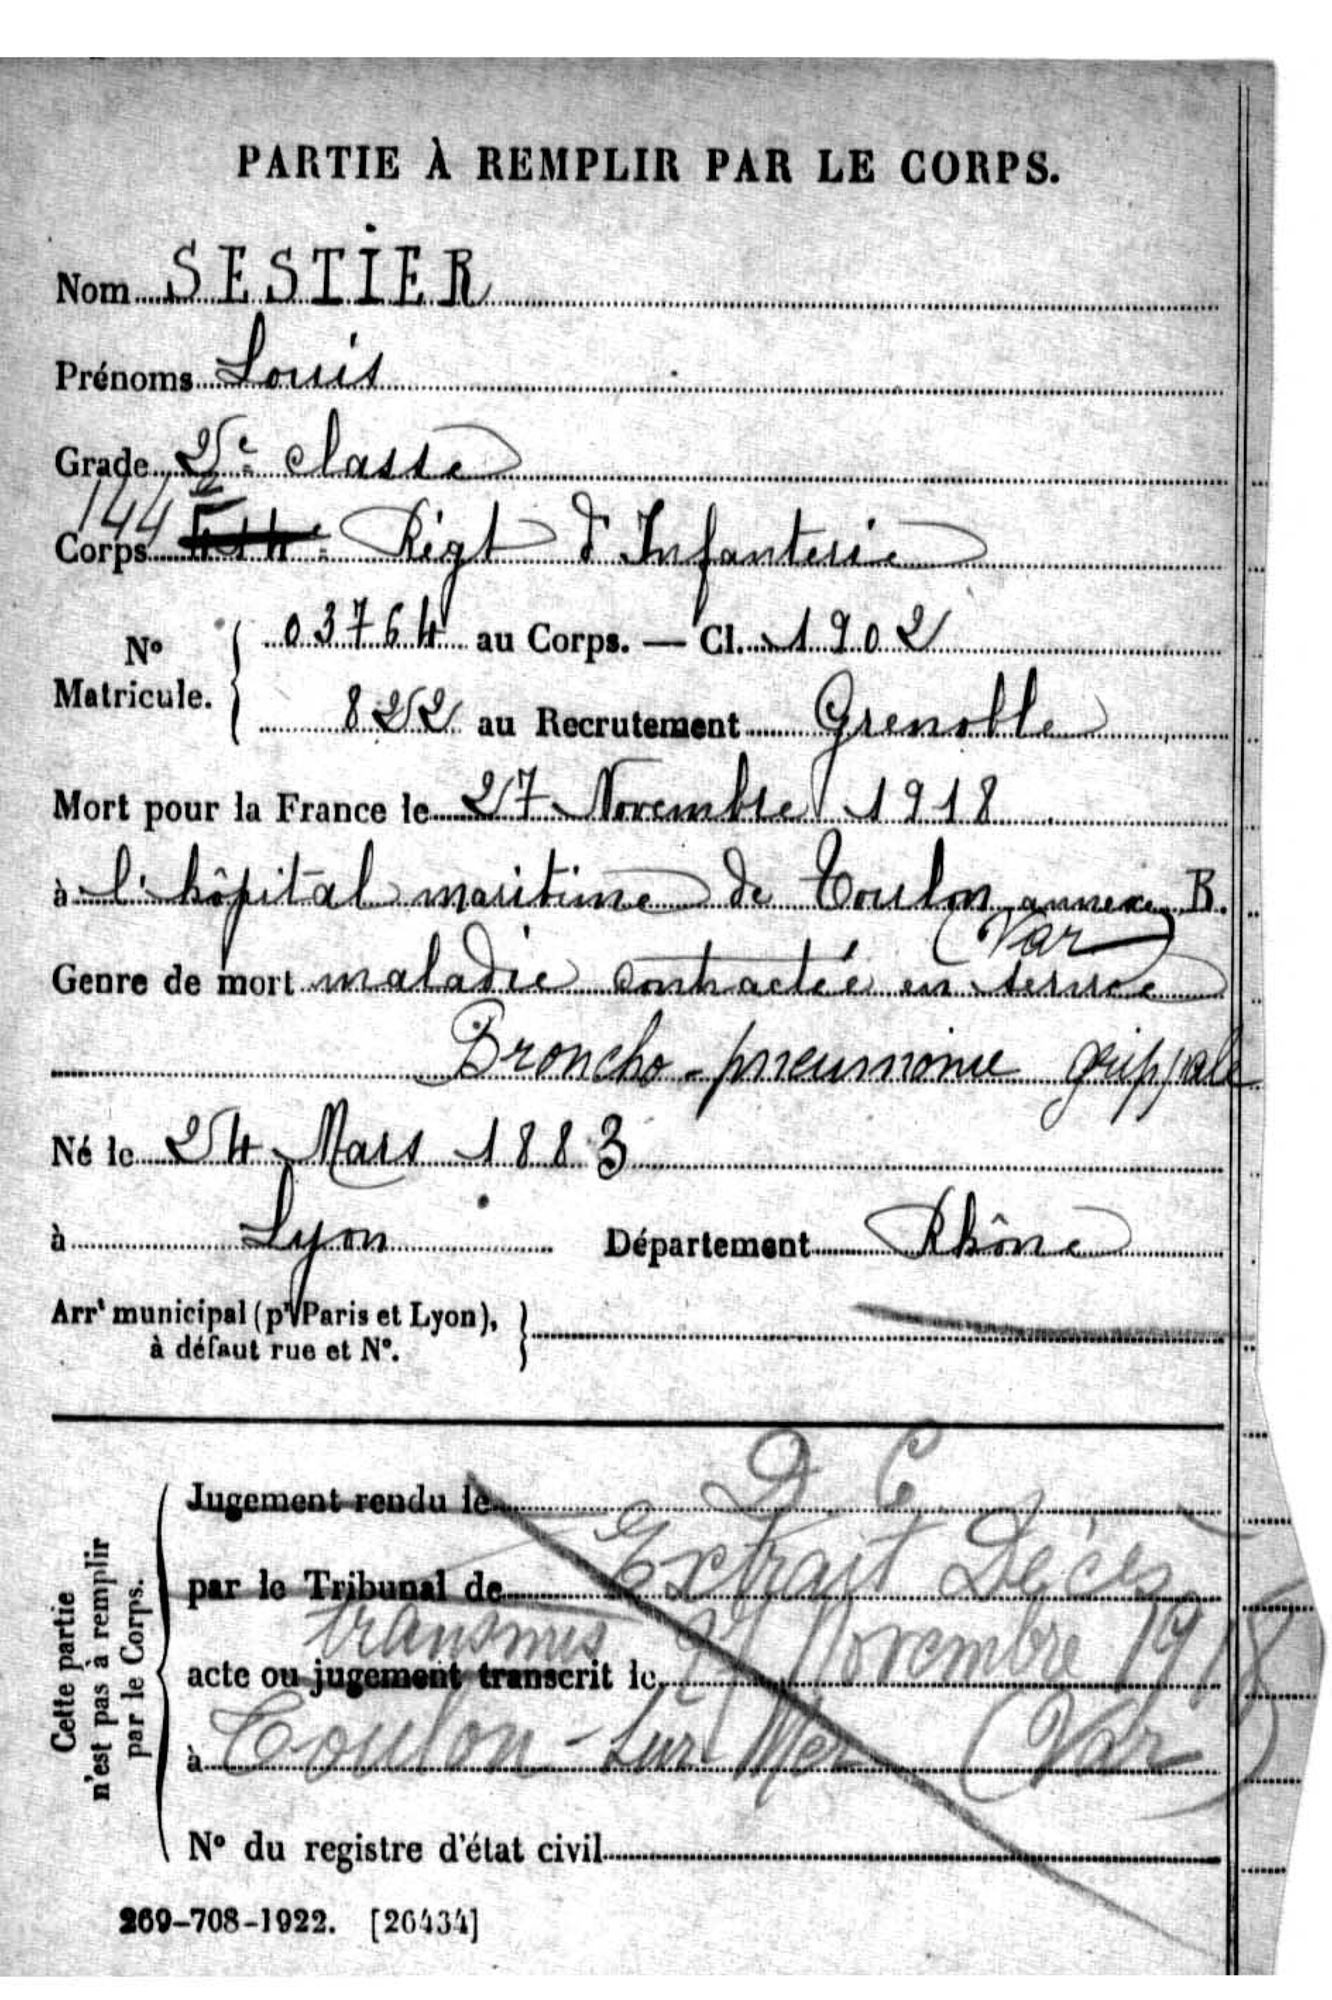 PARTIE À REMPLIR PAR LE CORPS.
Nom SESTIER
Prénoms Louis
Grade 2e classe
144e
Corps Régt d'Infanterie
No Matricule. 03764 au Corps. — Cl. 1902
822 au Recrutement Grenoble
Mort pour la France le 27 Novembre 1918
à l'hôpital maritime de Toulon annexe B.
(Var)
Genre de mort maladie contractée en service
Broncho-pneumonie grippale
Né le 24 Mars 1883
à Lyon Département Rhône
Arrt municipal (pr Paris et Lyon),
à défaut rue et No.
Cette partie
n'est pas à remplir
par le Corps.
D C
Jugement rendu le
Extrait Décès
par le Tribunal de
transmis 27 Novembre 1918
acte ou jugement transcrit le
à Toulon-sur-Mer (Var)
No du registre d'état civil
269-708-1922. [26434]